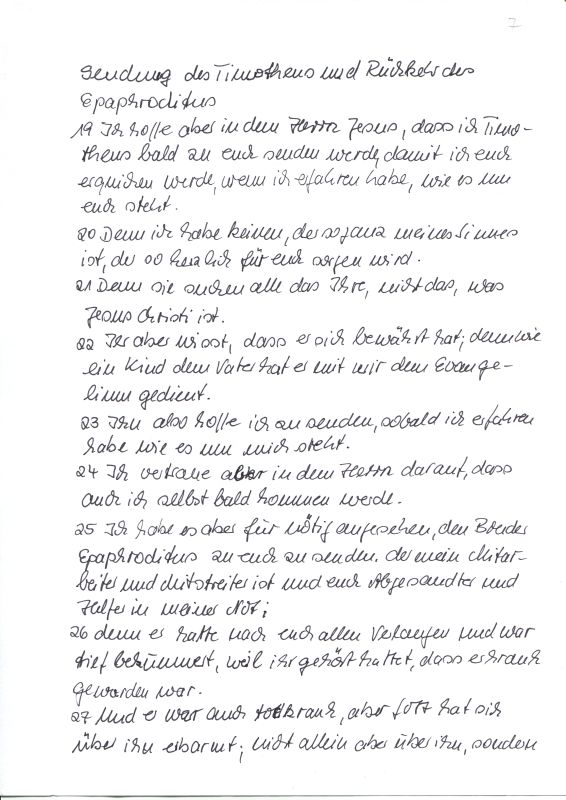 7
Sendung des Timotheus und Rückkehr des
Epaphroditus
19 Ich hoffe aber in dem Herrn Jesus, dass ich Timo-
theus bald zu euch senden werde, damit ich euch
erquicken werde, wenn ich erfahren habe, wie es um
euch steht.
20 Denn ich habe keinen, der so ganz meines Sinnes
ist, der so herzlich für euch sorgen wird.
21 Denn sie suchen alle das Ihre, nicht das, was
Jesus Christi ist.
22 Ihr aber wisst, dass er sich bewährt hat; denn wie
ein Kind dem Vater hat er mit mir dem Evange-
lium gedient.
23 Ihn also hoffe ich zu senden, sobald ich erfahren
habe wie es um mich steht.
24 Ich vertraue aber in dem Herrn darauf, dass
auch ich selbst bald kommen werde.
25 Ich habe es aber für nötig angesehen, den Bruder
Epaphroditus zu euch zu senden. der mein Mitar-
beiter und Mitstreiter ist und euch Abgesandter und
Helfer in meiner Not;
26 denn er hatte nach euch allen Verlangen und war
tief bekümmert, weil ihr gehört hattet, dass er krank
geworden war.
27 Und er war auch todkrank, aber Gott hat sich
über ihn erbarmt; nicht allein aber über ihn, sondern